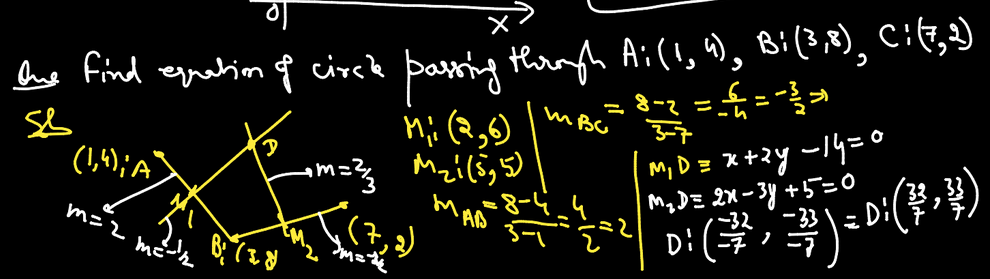 0
X
Que Find equation of circle passing through A:(1,4), B:(3,8), C:(7,2)
Sol
(1,4);A
m=2
M1
m=-1/2
B:(3,8)
D
m=2/3
M2
(7,2)
M1:(2,6)
M2:(5,5)
mAB = 8-4/3-1 = 4/2 = 2
mBC = 8-2/3-7 = 6/-4 = -3/2 ⇒
M1D ≡ x+2y-14=0
M2D ≡ 2x-3y+5=0
D:(-32/-7, -33/-7) = D:(32/7, 33/7)